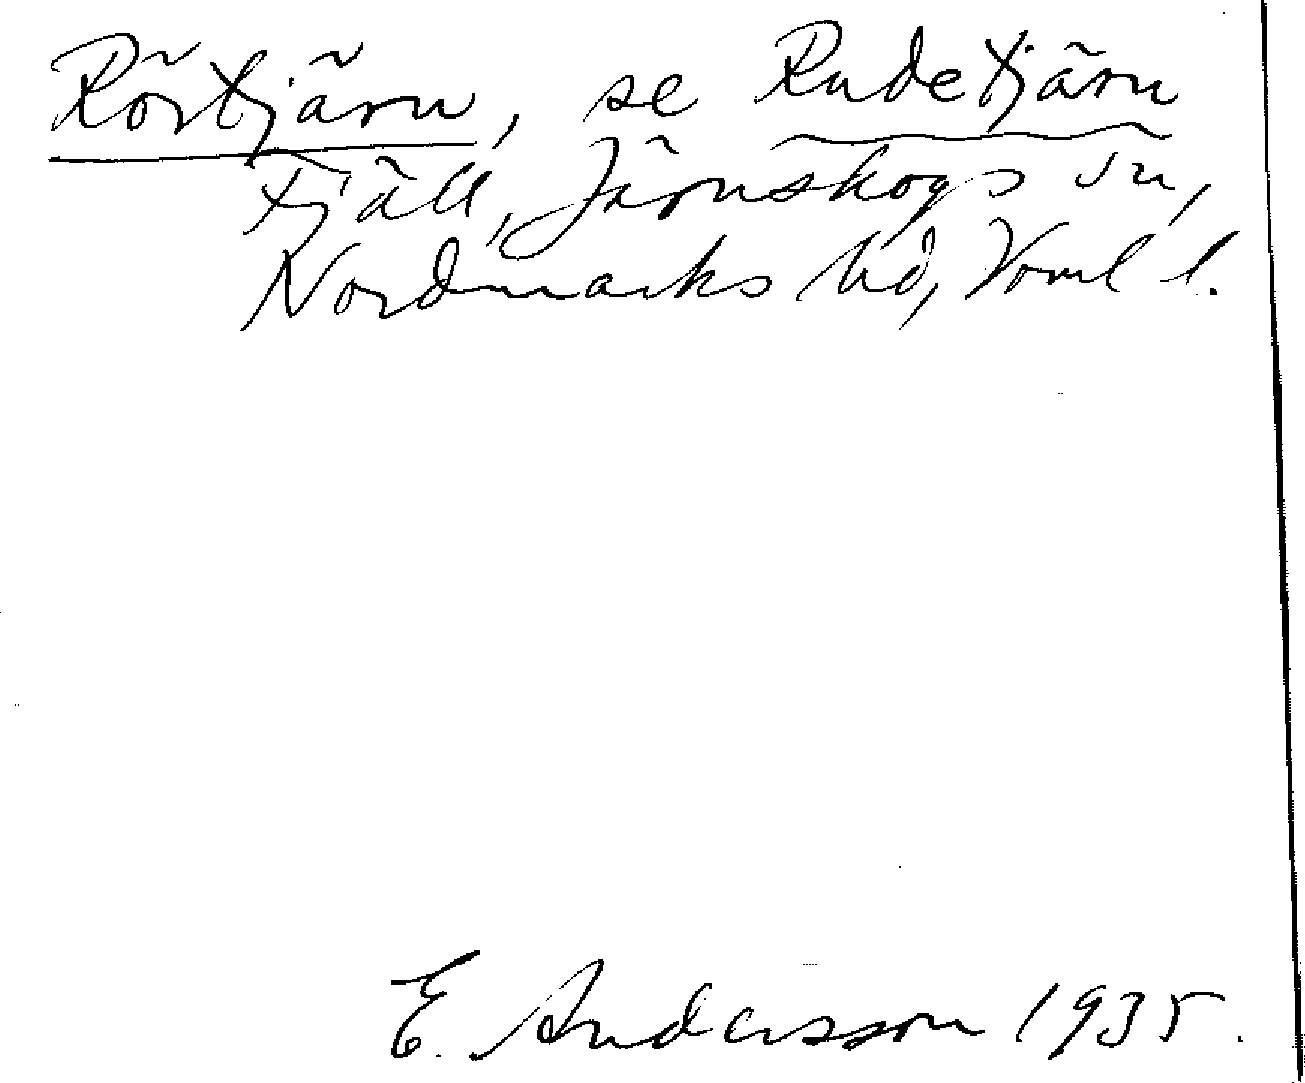 Rörtjärn, se Rudetjärn
Tjäll, Järnskogs sn,
Nordmarks hd, Vrml l.
E. Andersson 1935.